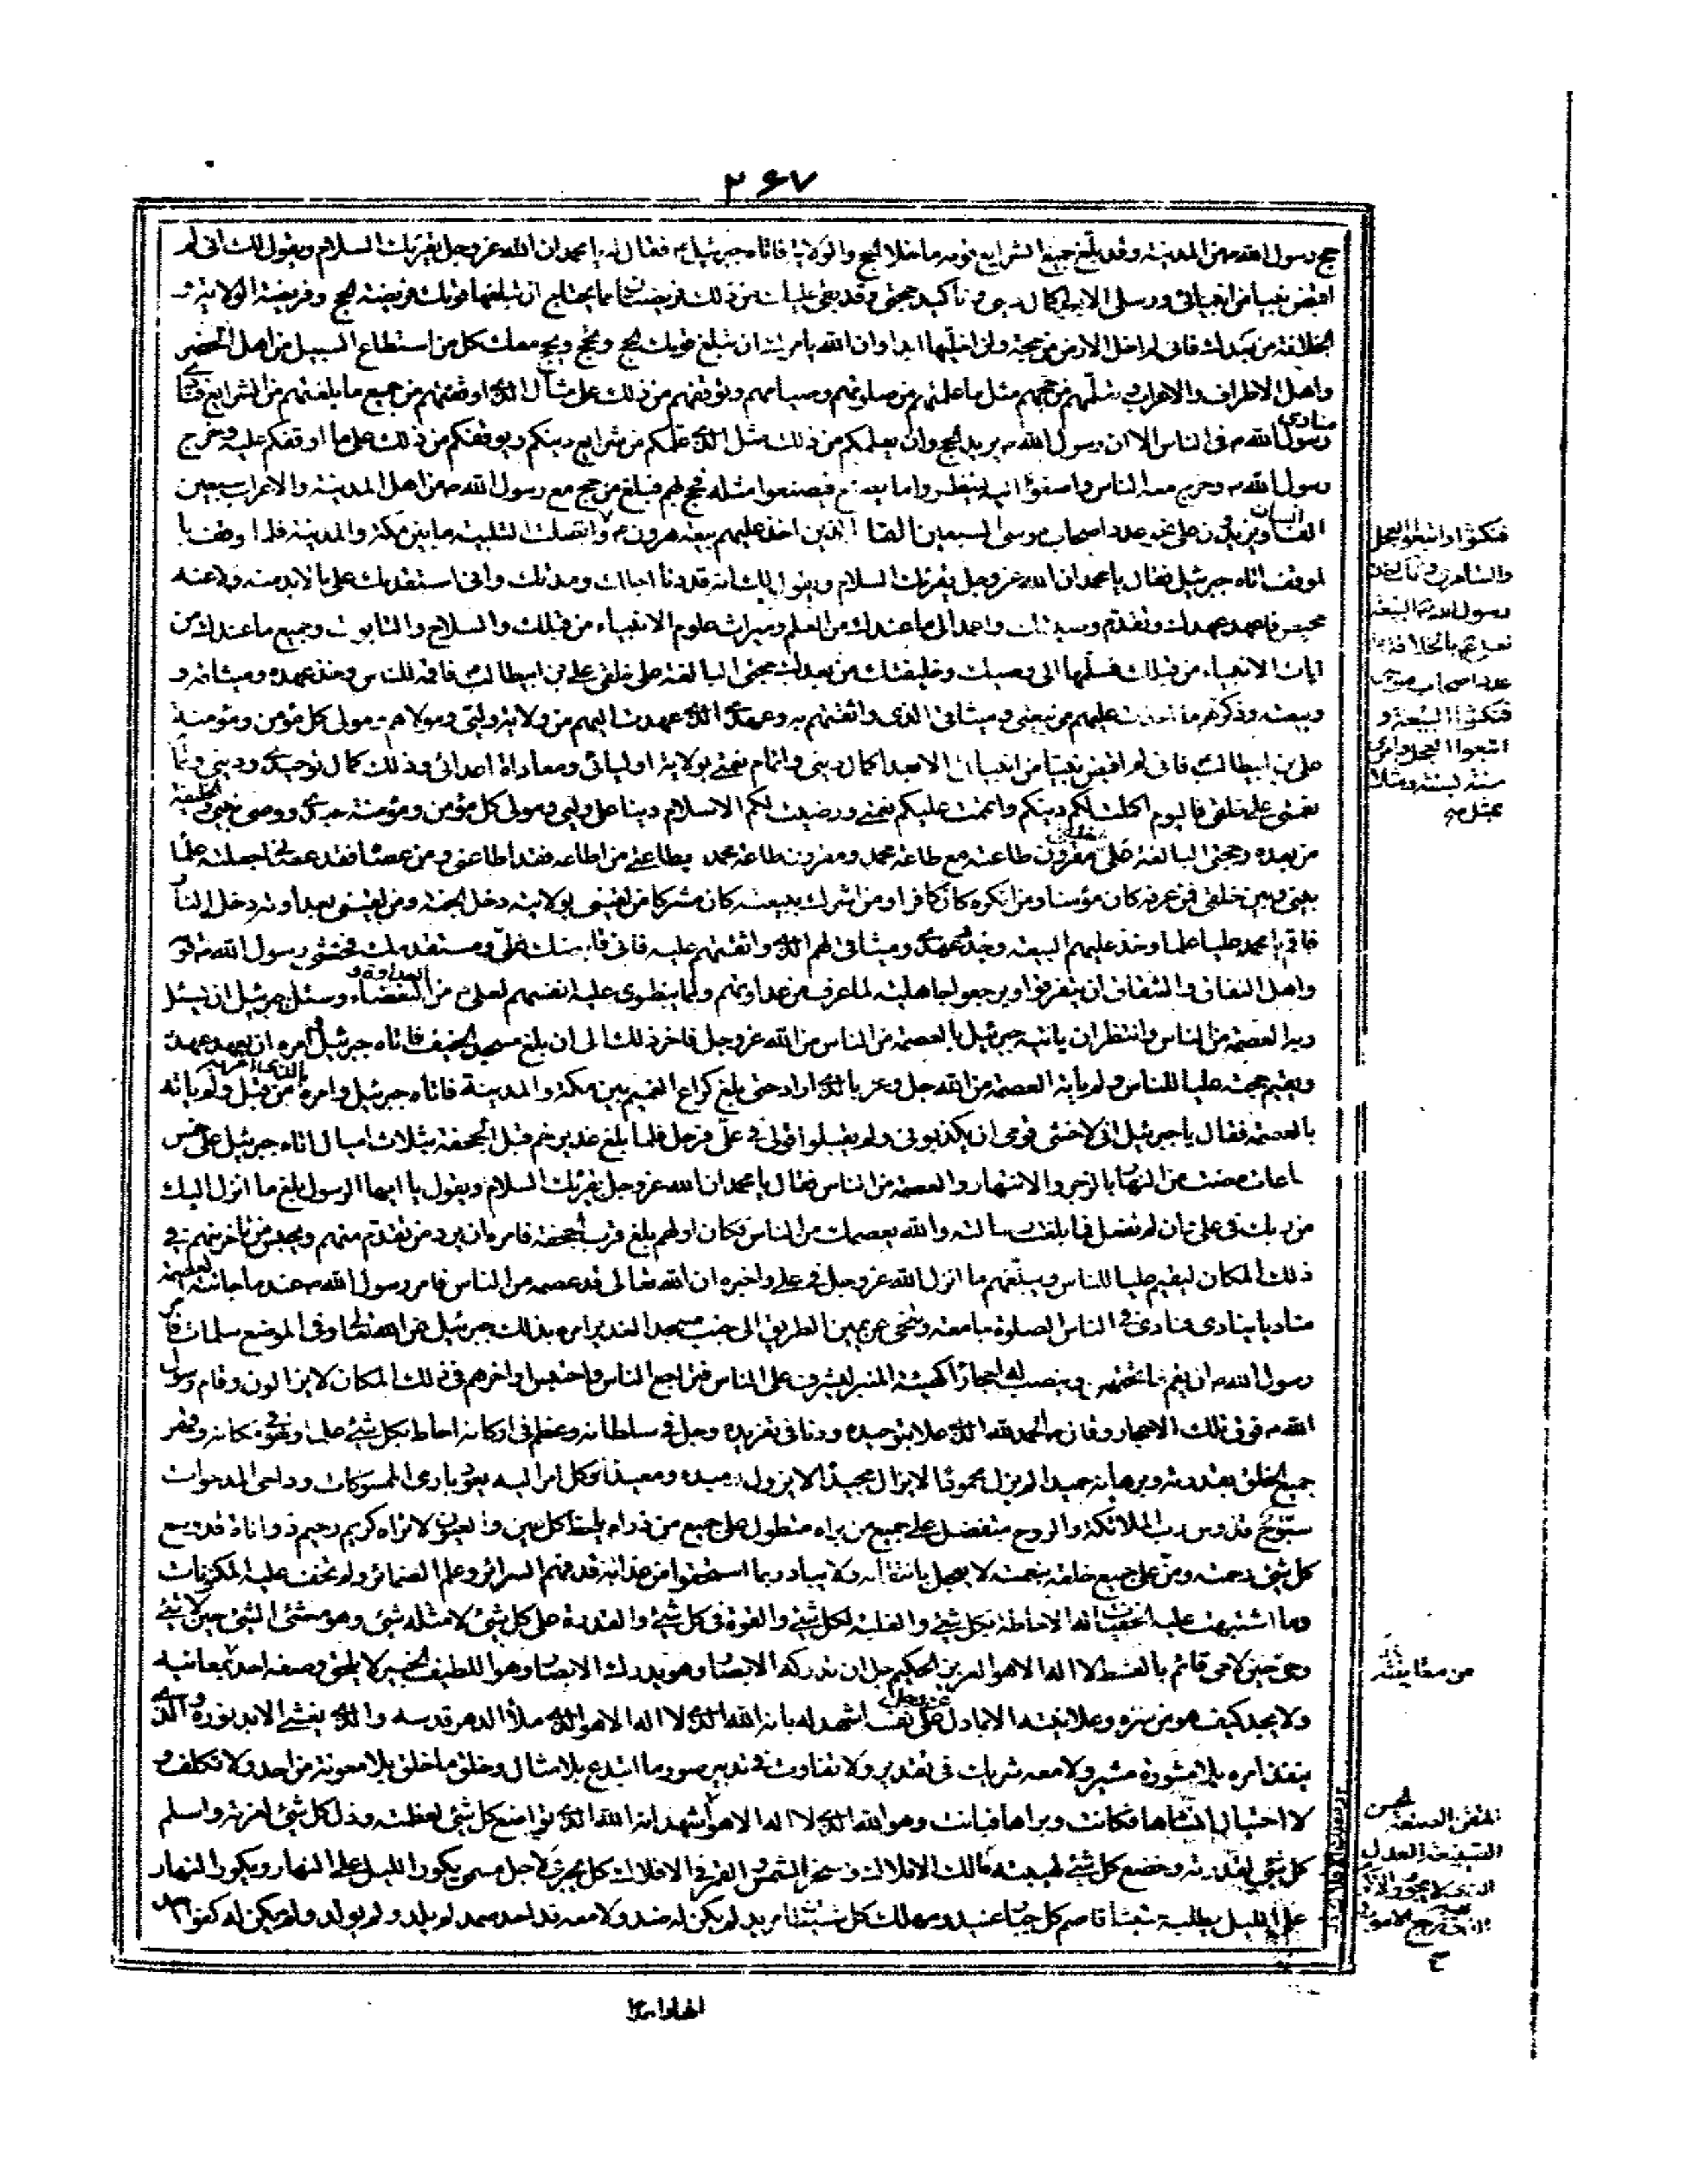 ٢٦٧
حج رسول الله ص من المدينة وقد بلغ جميع الشرايع قومه ما خلا الحج والولاية فاتاه جبرئيل ع فقال له يا محمد ان الله عز وجل يقرئك السلام ويقول لك انى لم
اقبض نبيا من انبيائى ورسلى الا بعد اكمال دينى وتاكيد حجتى وقد بقى عليك من ذلك فريضتان مما يحتاج ان تبلغهما قومك فريضة الحج وفريضة الولاية و
الخلافة من بعدك فانى لم اخل الارض من حجة ولن اخليها ابدا وان الله يامرك ان تبلغ قومك الحج وتحج ويحج معك كل من استطاع السبيل من اهل الحضر
واهل الاطراف والاعراب وتعلمهم من حجهم مثل ما علمتهم من صلوتهم وصيامهم وتوقفهم من ذلك على مثال الذى اوقفتهم من جميع ما بلغتهم من الشرايع فنادى
منادى رسول الله ص فى الناس الا ان رسول الله ص يريد الحج وان يعلمكم من ذلك مثل الذى علمكم من شرايع دينكم ويوقفكم من ذلك على ما اوقفكم عليه وخرج
رسول الله ص وخرج معه الناس واصغوا اليه لينظروا ما يصنع فيصنعوا مثله فحج بهم فبلغ من حج مع رسول الله ص من اهل المدينة والاعراب سبعين
الف انسان او يزيدون على نحو عدد اصحاب موسى السبعين الفا الذين اخذ عليهم بيعة هرون ع واتصلت التلبية ما بين مكة والمدينة فلما وقف با
لموقف اتاه جبرئيل فقال يا محمد ان الله عز وجل يقرئك السلام ويقول لك انه قد دنا اجلك ومدتك وانى استقدمك على ما لا بد منه ولا عنه
محيص فاعهد عهدك وتقدم وصيتك واعمد الى ما عندك من العلم وميراث علوم الانبياء من قبلك والسلاح والتابوت وجميع ما عندك من
ايات الانبياء من قبلك فسلمها الى وصيك وخليفتك من بعدك حجتى البالغة على خلقى على بن ابيطالب فاقمه للناس وخذ عهده وميثاقه و
وبيعته وذكرهم ما اخذت عليهم من بيعتى وميثاقى الذى واثقتهم به وعهدى الذى عهدت اليهم من ولاية وليى ومولاهم ومولى كل مؤمن ومؤمنة
على بن ابيطالب فانى لم اقبض نبيا من انبيائى الا بعد اكمال دينى واتمام نعمتى بولاية اوليائى ومعاداة اعدائى وذلك كمال توحيدى ودينى
نعمتى على خلقى فاليوم اكملت لكم دينكم واتممت عليكم نعمتى ورضيت لكم الاسلام دينا على وليى ومولى كل مؤمن ومؤمنة عبدى ووصى نبيى والخليفة
من بعده وحجتى البالغة على خلقى مقرون طاعته مع طاعة محمد ومقرون طاعة محمد بطاعتى من اطاعه فقد اطاعنى ومن عصاه فقد عصانى جعلته علما
بينى وبين خلقى فمن عرفه كان مؤمنا ومن انكره كان كافرا ومن اشرك ببيعته كان مشركا من لقينى بولايته دخل الجنة ومن لقينى بعداوته دخل النار
فاقم يا محمد عليا علما وخذ عليهم البيعة وخذ عهدى وميثاقى لهم الذى واثقتهم عليه فانى قابضك الى ومستقدمك فخشى رسول الله ص قومه
واهل النفاق والشقاق ان يتفرقوا ويرجعوا جاهلية لما عرف من عداوتهم ولما ينطوى عليه انفسهم لعلى ع من العداوة والبغضاء وسئل جبرئيل ان يسئل
ربه العصمة من الناس وانتظر ان ياتيه جبرئيل بالعصمة من الناس من الله عز وجل فاخر ذلك الى ان بلغ مسجد الخيف فاتاه جبرئيل وامره ان يعهد عهده
ويقيم حجة عليا للناس ولم ياته العصمة من الله جل وعز بالذى اراد حتى بلغ كراع الغميم بين مكة والمدينة فاتاه جبرئيل وامره بالذى من قبل ولم ياته
بالعصمة فقال يا جبرئيل انى لاخشى قومى ان يكذبونى ولم يقبلوا قولى فى على فرحل فلما بلغ غدير خم قبل الجحفة بثلاث اميال اتاه جبرئيل على خمس
ساعات مضت من النهار بالزجر والانتهار والعصمة من الناس فقال يا محمد ان الله عز وجل يقرئك السلام ويقول يا ايها الرسول بلغ ما انزل اليك
من ربك فى على وان لم تفعل فما بلغت رسالته والله يعصمك من الناس وكان اولهم بلغ قرب الجحفة فامره ان يرد من تقدم منهم ويحبس من تاخر منهم فى
ذلك المكان ليقيم عليا للناس ويبلغهم ما انزل الله عز وجل فى على واخبره ان الله تعالى قد عصمه من الناس فامر رسول الله ص عند ما جائته العصمة
مناديا ينادى فنادى فى الناس الصلوة جامعة وتنحى عن يمين الطريق الى جنب مسجد الغدير امره بذلك جبرئيل عن الله تعالى وفى الموضع سلمات فامر
رسول الله ص ان يقم ما تحتهن وينصب له احجار كهيئة المنبر ليشرف على الناس فتراجع الناس واحتبس اواخرهم فى ذلك المكان لا يزالون وقام رسول
الله ص فوق تلك الاحجار وقال ص الحمد لله الذى علا بتوحيده ودنا فى تفريده وجل فى سلطانه وعظم فى اركانه احاط بكل شئ علما وهو فى مكانه وقهر
جميع الخلق بقدرته وبرهانه حميدا لم يزل محمودا لا يزال مجيدا لا يزول ومبدءا ومعيدا وكل امر اليه يعود بارئ المسموكات وداحى المدحوات
سبوح قدوس رب الملائكة والروح متفضل على جميع من براه متطول على جميع من ذراه يلحظ كل عين والعيون لا تراه كريم رحيم ذو اناة قد وسع
كل شئ رحمته ومن على جميع خلقه بنعمته لا يعجل بانتقامه ولا يبادر بما استحقوا من عذابه قد فهم السرائر وعلم الضمائر ولم تخف عليه المكنونات
وما اشتبهت عليه الخفيات له الاحاطة بكل شئ والغلبة لكل شئ والقوة فى كل شئ والقدرة على كل شئ لا مثله شئ وهو منشئ الشئ حين لا شئ
وحى حين لا حى قائم بالقسط لا اله الا هو العزيز الحكيم جل ان تدركه الابصار وهو يدرك الابصار وهو اللطيف الخبير لا يلحق وصفه احد بمعاينة
ولا يجد كيف هو من سر وعلانية الا بما دل عز وجل على نفسه اشهد له بانه الله الذى لا اله الا هو الذى ملأ الدهر قدسه والذى يغشى الابد نوره والذى
ينفذ امره بلا مشورة مشير ولا معه شريك فى تقدير ولا تفاوت فى تدبير صور ما ابتدع بلا مثال وخلق ما خلق بلا معونة من احد ولا تكلف و
لا احتيال انشاها فكانت وبراها فبانت وهو الله الذى لا اله الا هو اشهد انه الله الذى تواضع كل شئ لعظمته وذل كل شئ لعزته واسلم
كل شئ لقدرته وخضع كل شئ لهيبته مالك الافلاك وسخر الشمس والقمر فى الافلاك كل يجرى لاجل مسمى يكور الليل على النهار ويكور النهار
على الليل يطلبه حثيثا قاصم كل جبار عنيد ومهلك كل شيطان مريد لم يكن له ضد ولا معه ند احد صمد لم يلد ولم يولد ولم يكن له كفوا احد
فنكثوا واتبعوا العجل
والسامرى وكذلك اخذ
رسول الله ص البيعة
لعلى ع بالخلافة على
عدد اصحاب موسى
فنكثوا البيعة و
اتبعوا العجل والسامرى
سنة بسنة ومثلا
بمثل
من معاينة
المتقن الصنعة الحسن
الصنيعة العدل
الذى لا يجور والاكرم
الذى ترجع اليه الامور
الها واحدا